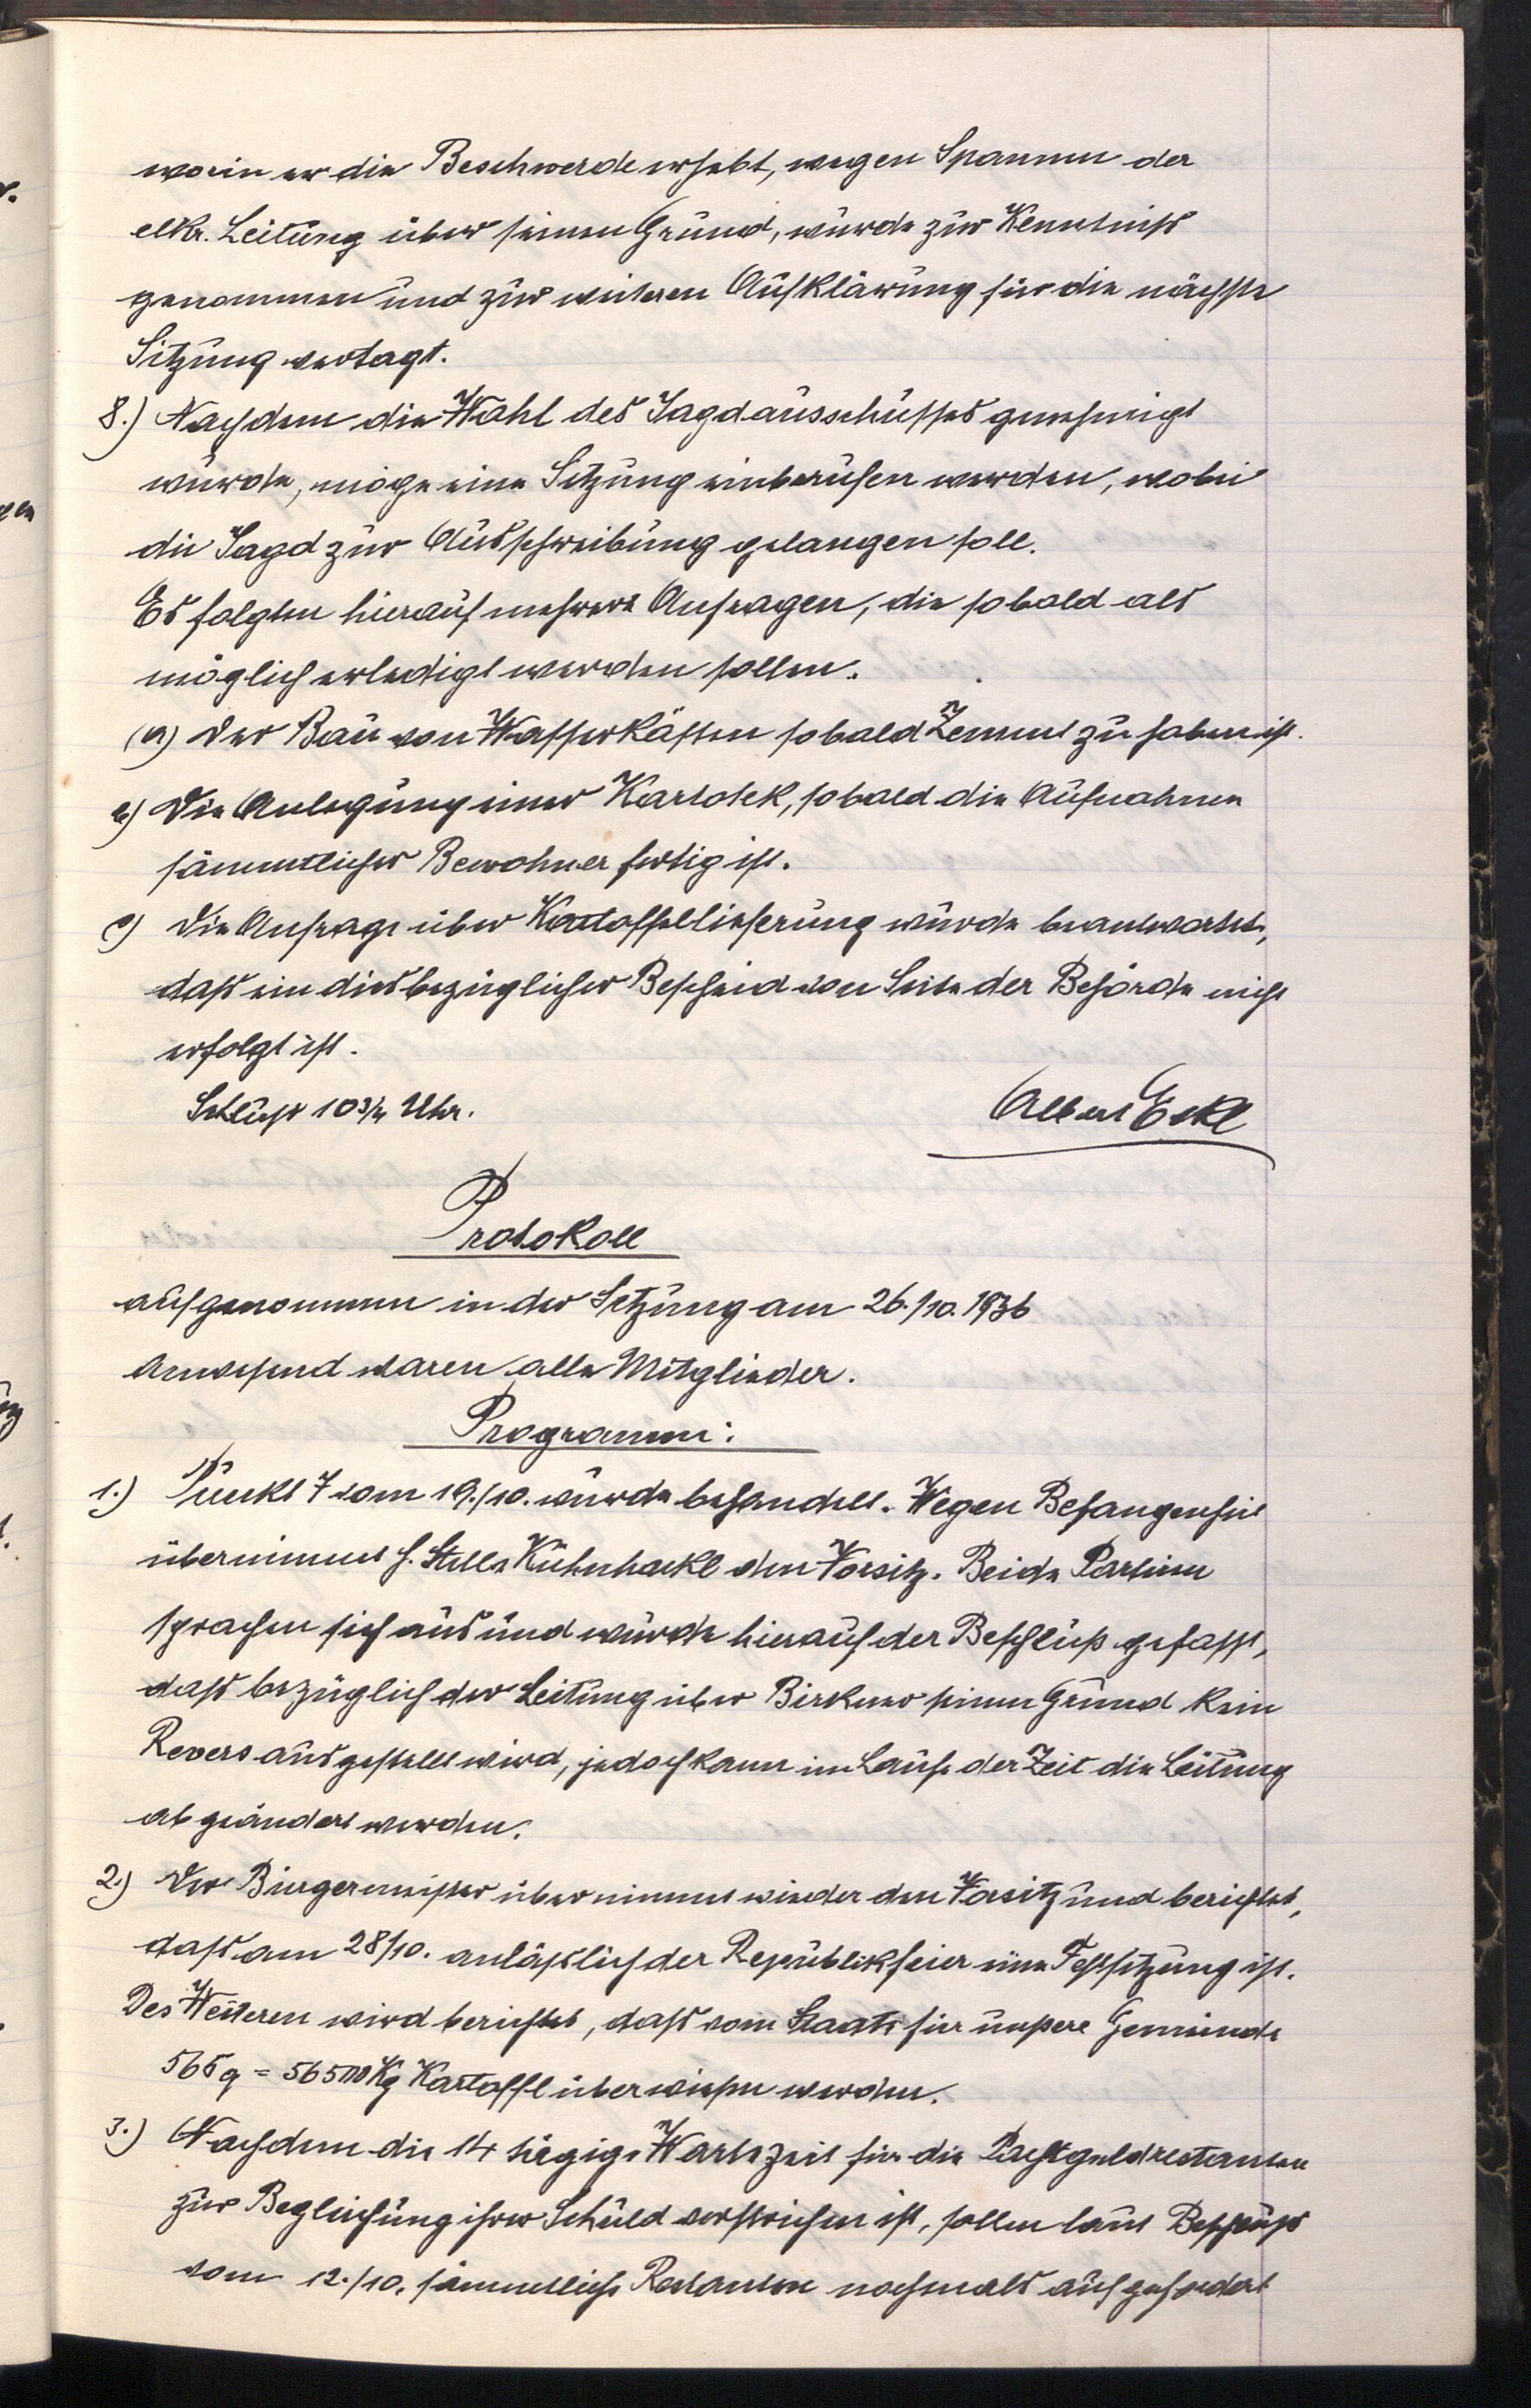 worin er die Beschwerde erhebt, wegen Spannen der
elktr. Leitung über seinen Grund, wurde zur Kenntniss
genommen und zur weiteren Aufklärung für die nächste
Sitzung vertagt.
8.) Nachdem die Wahl des Jagdausschusses genehmigt
wurde, möge eine Sitzung einberufen werden, wobei
die Jagd zur Ausschreibung gelangen soll.
Es folgten hierauf mehrere Anfragen, die sobald als
möglich erledigt werden sollen.
(a) Der Bau von Wasserkästen sobald Zement zu haben ist.
b) Die Anlegung einer Kartotek, sobald die Aufnahmen
sämmtlicher Bewohner fertig ist.
c) Die Anfrage über Kartoffellieferung wurde beantwortet,
dass ein diesbezüglicher Bescheid von Seite der Behörde nicht
erfolgt ist.
Schluss 10 3/4 Uhr.
Albert Eckl
Protokoll
aufgenommen in der Sitzung am 26./10. 1936
Anwesend waren alle Mitglieder.
Programm:
1.) Punkt 7 vom 19./10. wurde behandelt. Wegen Befangenheit
übernimmt h. Stelle Kühnhackl den Vorsitz. Beide Parteien
sprachen sich aus und wurde hierauf der Beschluß gefasst,
dass bezüglich der Leitung über Birkner seinen Grund kein
Revers ausgestellt wird, jedoch kann im Laufe der Zeit die Leitung
abgeändert werden.
2.) Der Bürgermeister übernimmt wieder den Vorsitz und berichtet,
dass am 28/10. anläßlich der Republikfeier eine Festsitzung ist.
Des Weiteren wird berichtet, dass vom Staate für unsere Gemeinde
565 q = 56500 Kg Kartoffl überwiesen werden.
3.) Nachdem die 14 tägige Wartezeit für die Pachtgeldrestanten
zur Begleichung ihrer Schuld verstrichen ist, sollen laut Beschluss
vom 12./10. sämmtliche Restanten nochmals aufgefordert